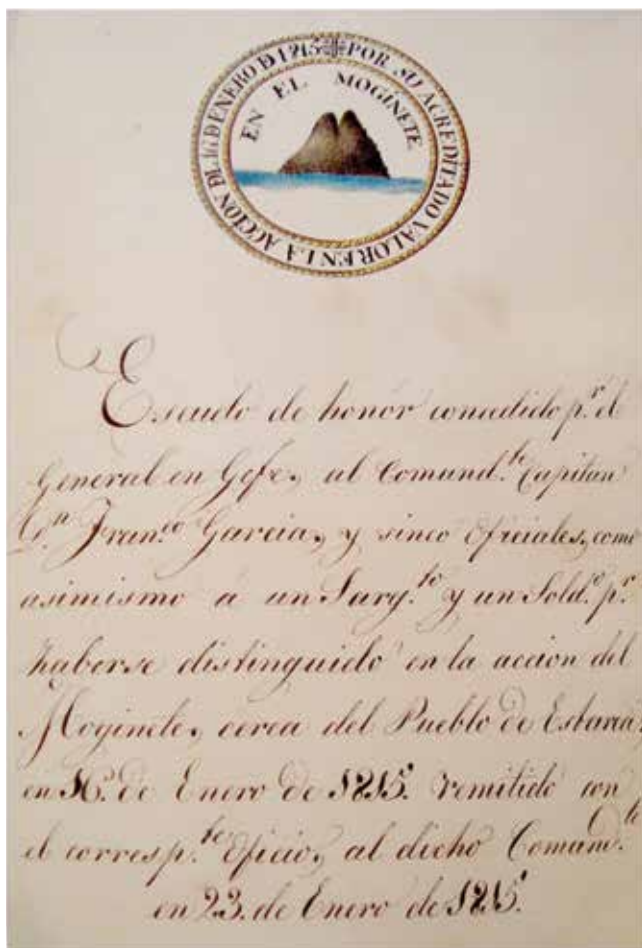 POR SU ACREDITADO VALOR EN LA ACCION DE 16 DE ENERO D 1815
EN EL MOGINETE
Escudo de honór concedido p.r el
General en Gefe, al Comand.te Capitan
D.n Fran.co Garcia, y sinco oficiales, como
asimismo á un Sarg.to y un Sold.o p.r
haberse distinguido en la accion del
Moginete, cerca del Pueblo de
en 16 de Enero de 1815. remitido con
el corresp.te oficio, al dicho Comand.te
en 23. de Enero de 1815.